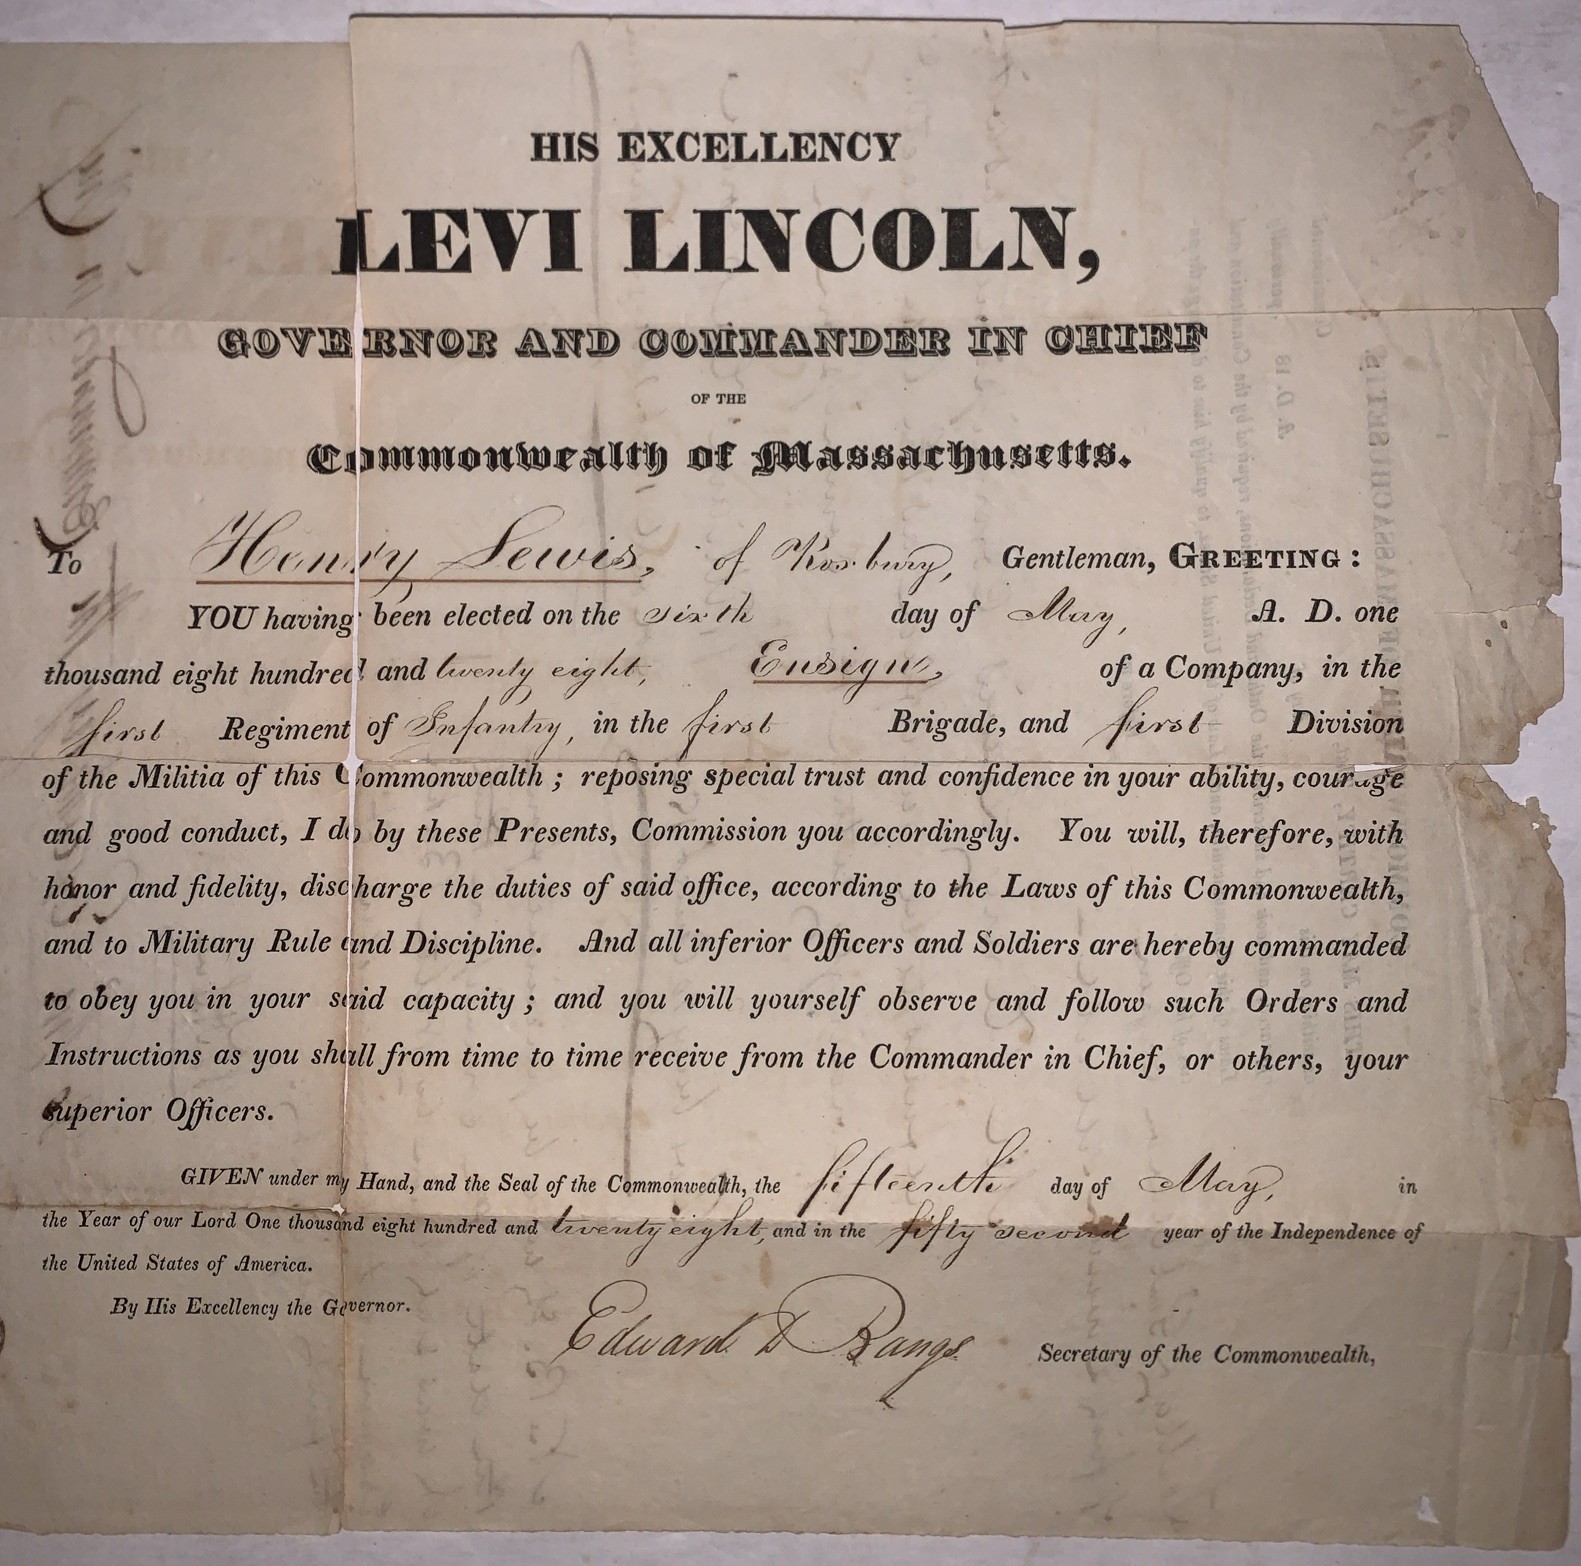 HIS EXCELLENCY
LEVI LINCOLN,
GOVERNOR AND COMMANDER IN CHIEF
OF THE
Commonwealth of Massachusetts.
To Henry Lewis, of Roxbury, Gentleman, GREETING:
YOU having been elected on the sixth day of May, A. D. one
thousand eight hundred and twenty eight, Ensign, of a Company, in the
first Regiment of Infantry, in the first Brigade, and first Division
of the Militia of this Commonwealth; reposing special trust and confidence in your ability, courage
and good conduct, I do by these Presents, Commission you accordingly. You will, therefore, with
honor and fidelity, discharge the duties of said office, according to the Laws of this Commonwealth,
and to Military Rule and Discipline. And all inferior Officers and Soldiers are hereby commanded
to obey you in your said capacity; and you will yourself observe and follow such Orders and
Instructions as you shall from time to time receive from the Commander in Chief, or others, your
superior Officers.
GIVEN under my Hand, and the Seal of the Commonwealth, the fifteenth day of May, in
the Year of our Lord One thousand eight hundred and twenty eight, and in the fifty second year of the Independence of
the United States of America.
By His Excellency the Governor.
Edward D Bangs Secretary of the Commonwealth,